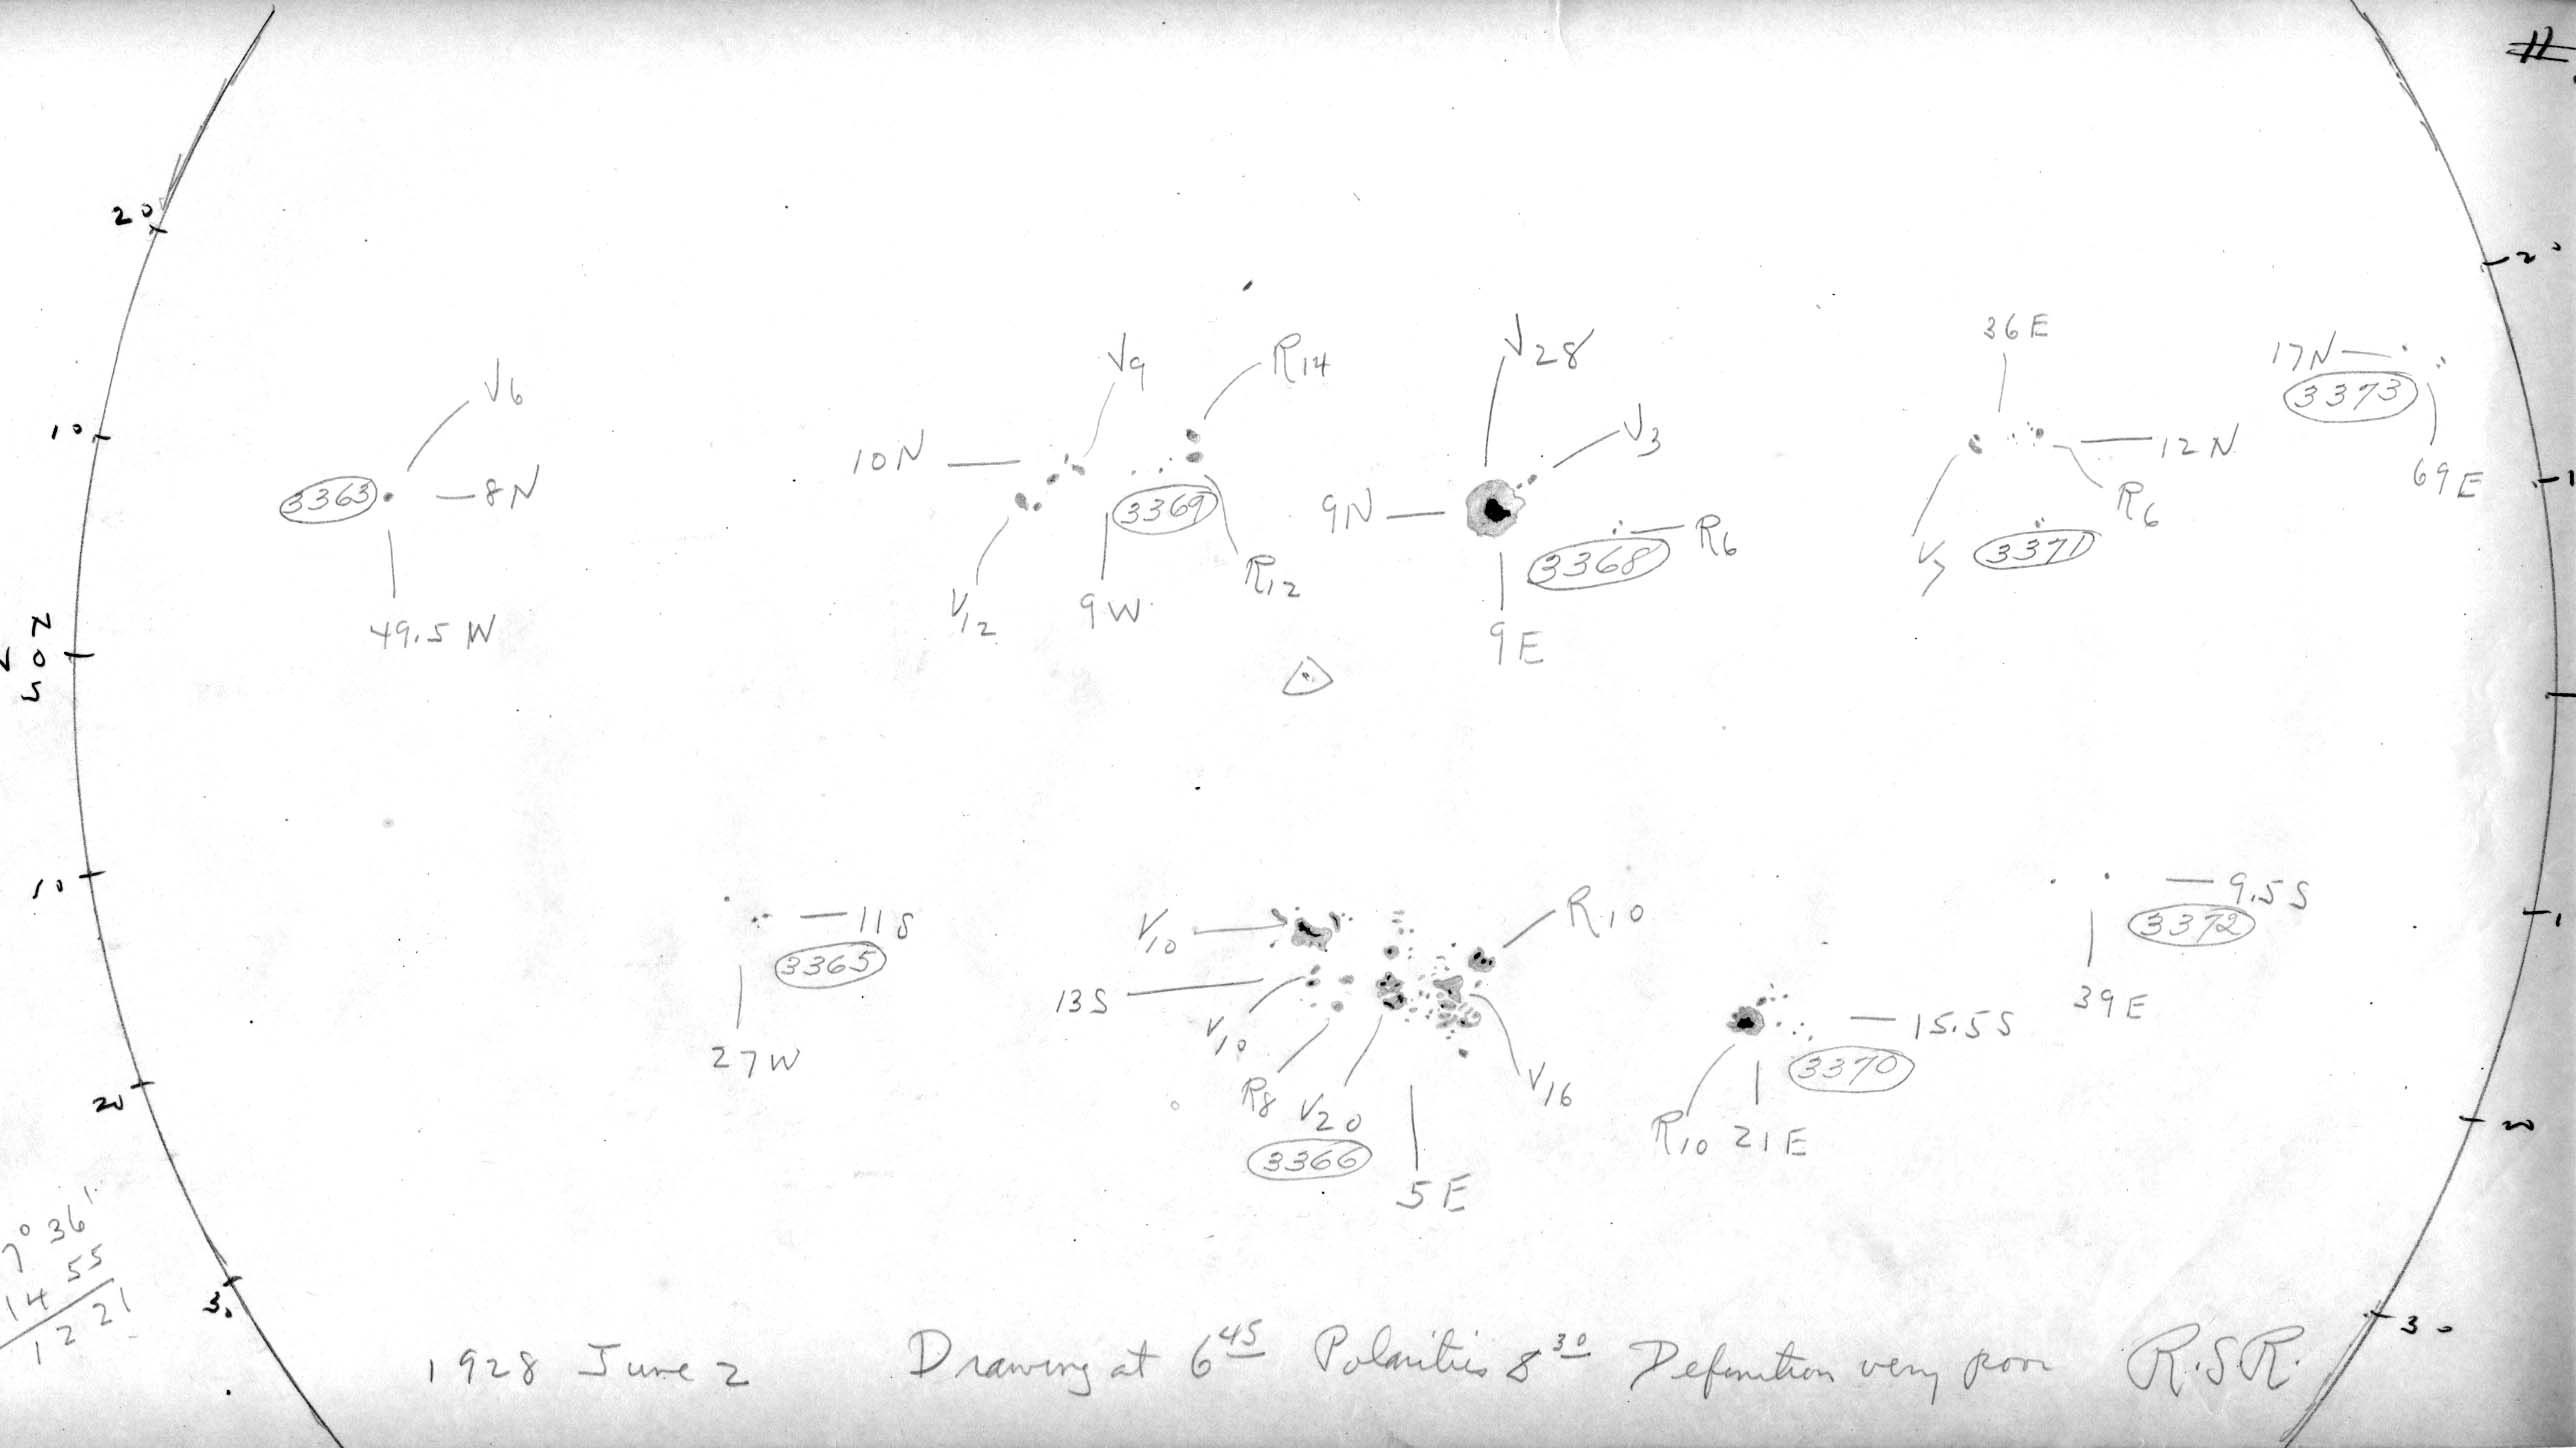 20
2°
36E
V9
R14
V28
17N
3373
V6
10
V3
10N
12N
69E
3363
8N
3369
9N
R6
R6
3368
V7
3371
R12
V12
9W
49.5 W
9E
N
0
S
10
9.5S
3372
V10
R10
11S
3365
13S
39E
15.5S
V10
27W
3370
20
R8
V20
V16
20
R10
21E
3366
5E
7° 36'
14 55
12 21
30
30
1928 June 2 Drawing at 6 45 Polarities 8 30 Definition very poor R.S.R.